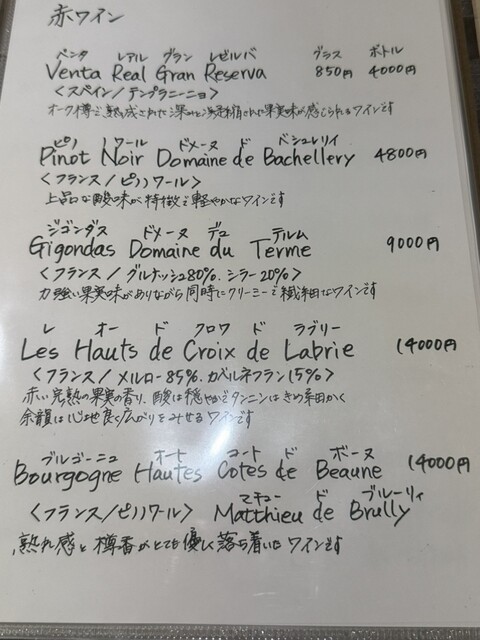 赤ワイン
ベンタ レアル グラン レゼルバ グラス ボトル
Venta Real Gran Reserva 850円 4000円
<スペイン/テンプラニーニョ>
オーク樽で熟成された深みと凝縮された果実味が感じられるワインです
ピノ ノワール ドメーヌ ド ベシュレリィ
Pinot Noir Domaine de Bachellery 4800円
<フランス/ピノノワール>
上品な酸味が特徴で軽やかなワインです
ジゴンダス ドメーヌ デュ テルム
Gigondas Domaine du Terme 9000円
<フランス/グルナッシュ80%.シラー20%>
力強い果実味がありながら同時にクリーミーで繊細なワインです
レ オー ド クロワ ド ラブリー
Les Hauts de Croix de Labrie 14000円
<フランス/メルロー85%.カベルネフラン15%>
赤い完熟の果実の香り、酸は穏やかでタンニンはきめ細かく
余韻は心地良く広がりをみせるワインです
ブルゴーニュ オート コート ド ボーヌ
Bourgogne Hautes Cotes de Beaune 14000円
マチュー ド ブルーリィ
<フランス/ピノノワール> Matthieu de Brully
熟れ感と樽香がとても優しく落ち着いたワインです